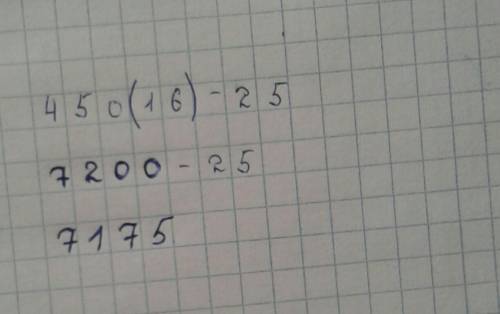 450(16)-25
7200-25
7175